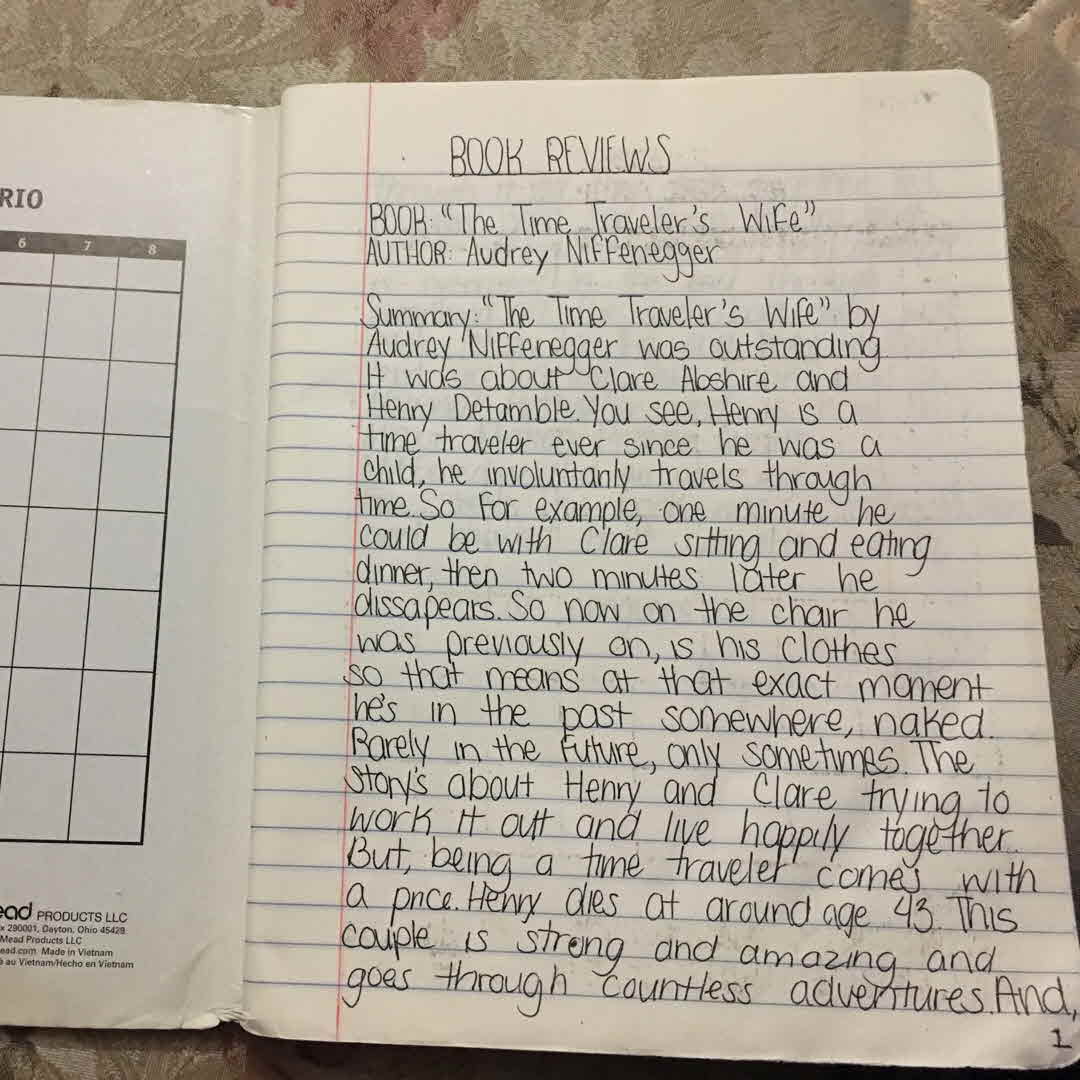 RIO
6 7 8
ead PRODUCTS LLC
x 290001, Dayton, Ohio 45429
Mead Products LLC
ead.com Made in Vietnam
é au Vietnam/Hecho en Vietnam
BOOK REVIEWS
BOOK: "The Time Traveler's Wife"
AUTHOR: Audrey Niffenegger
Summary: "The Time Traveler's Wife" by
Audrey Niffenegger was outstanding
It was about Clare Abshire and
Henry Detamble. You see, Henry is a
time traveler ever since he was a
child, he involuntarily travels through
time. So for example, one minute he
could be with Clare sitting and eating
dinner, then two minutes later he
dissapears. So now on the chair he
was previously on, is his clothes
so that means at that exact moment
he's in the past somewhere, naked.
Rarely in the future, only sometimes. The
story's about Henry and Clare trying to
work it out and live happily together.
But, being a time traveler comes with
a price. Henry dies at around age 43. This
couple is strong and amazing and
goes through countless adventures. And,
1